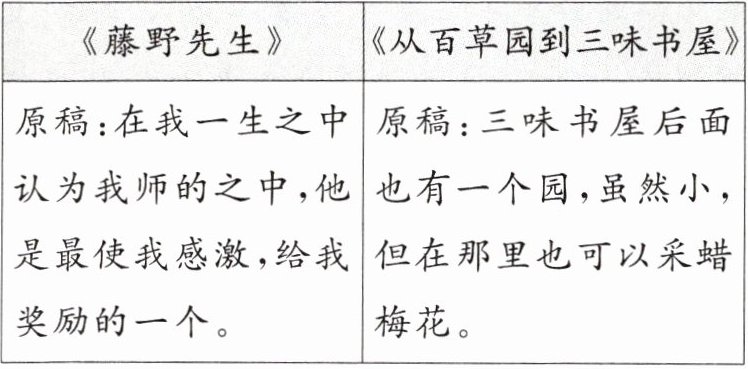 《藤野先生》
《从百草园到三味书屋》
原稿:在我一生之中
认为我师的之中,他
是最使我感激,给我
奖励的一个。
原稿:三味书屋后面
也有一个园,虽然小,
但在那里也可以采蜡
梅花。